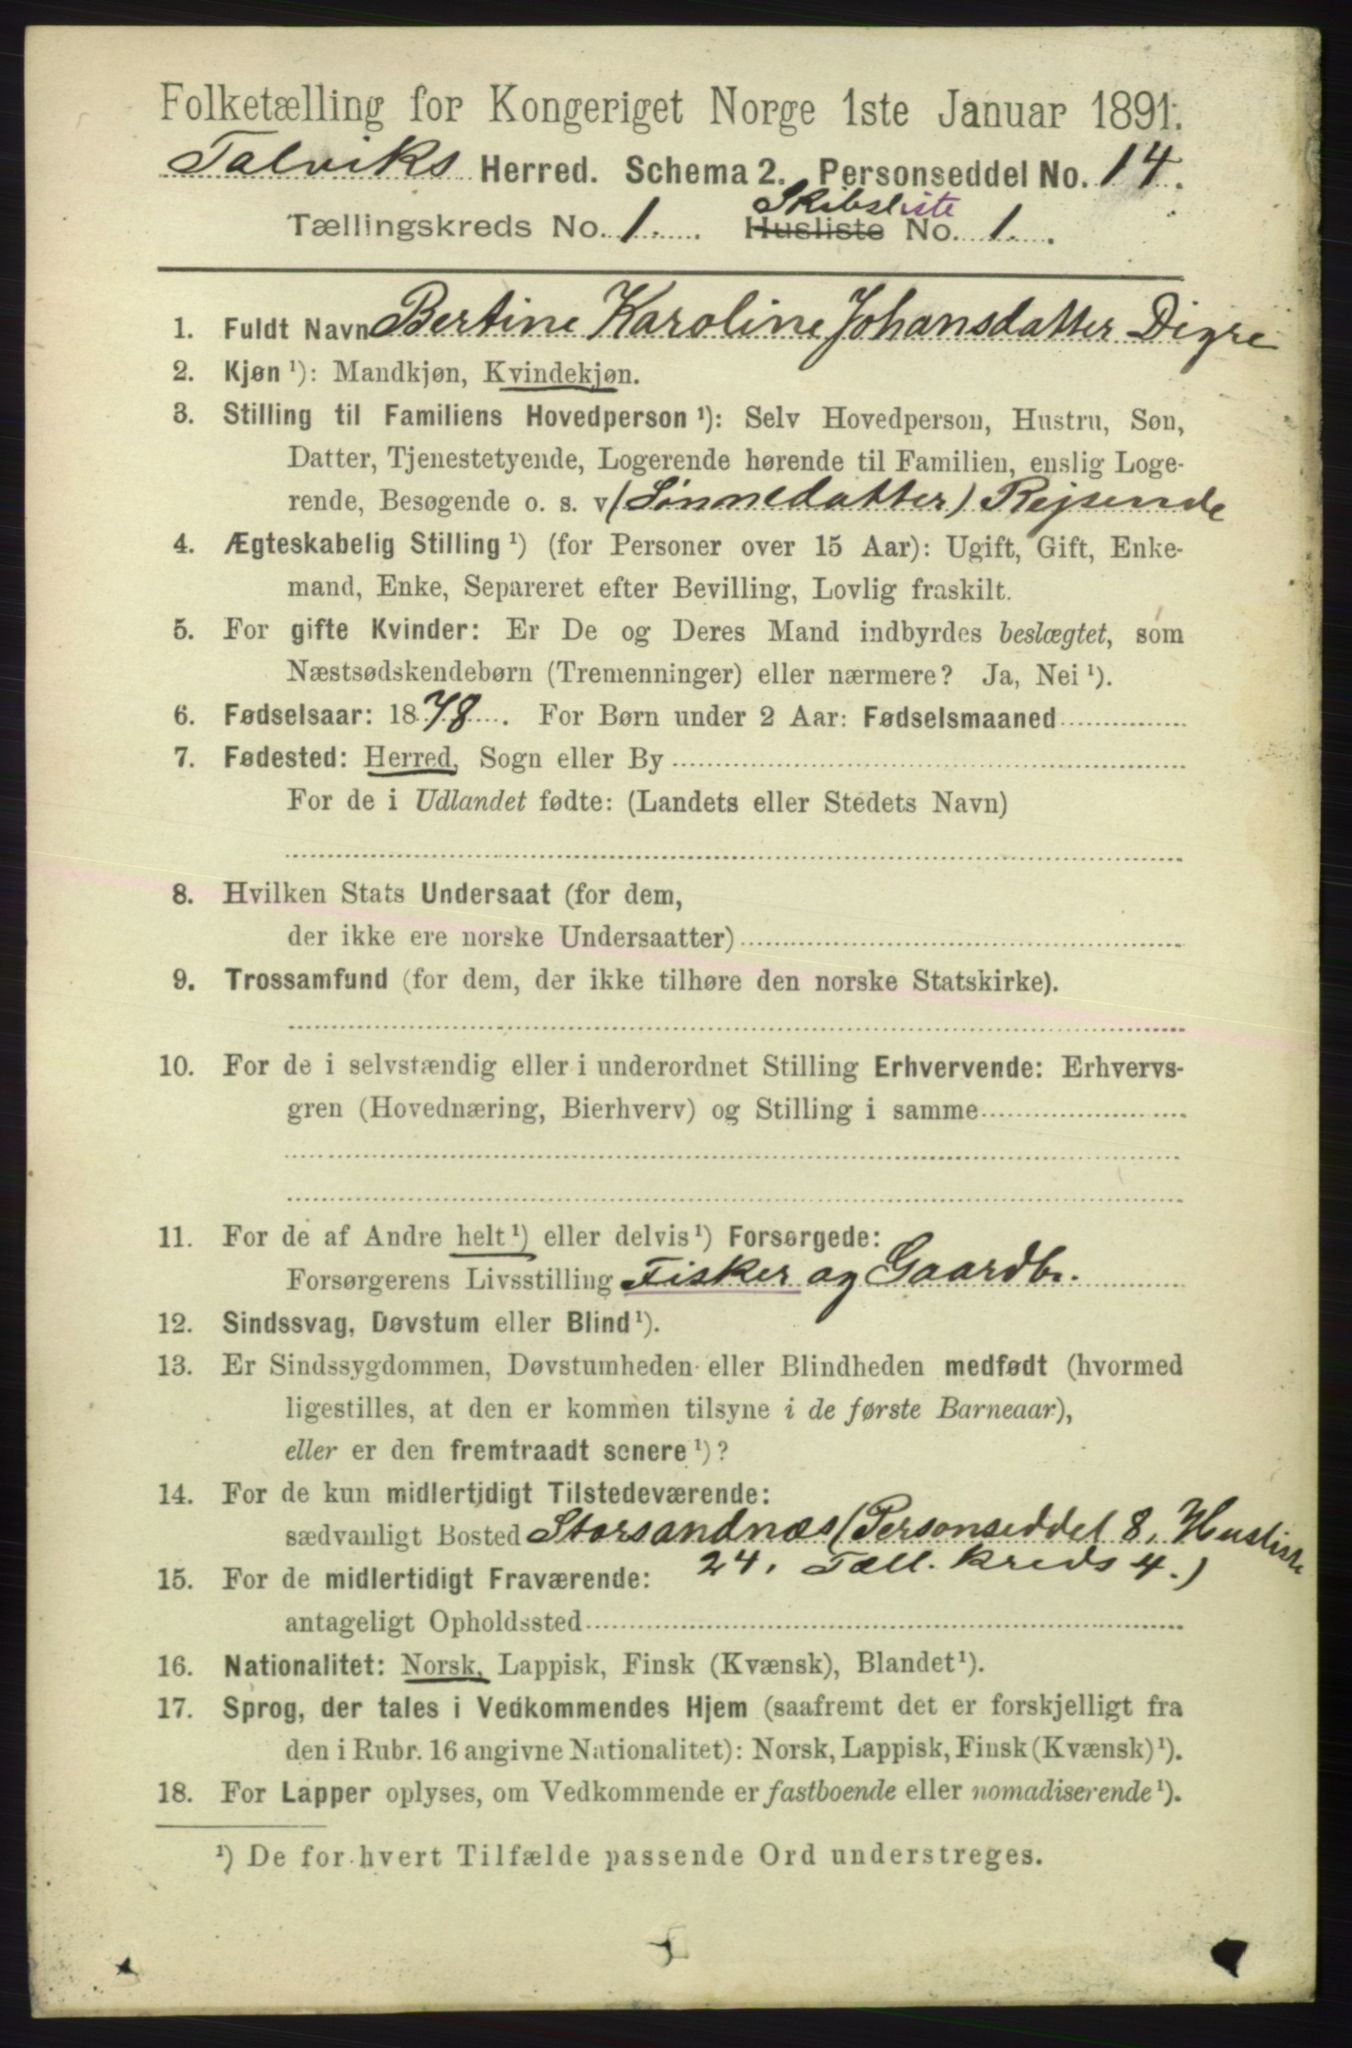 Folketælling for Kongeriget Norge 1ste Januar 1891.
Talviks Herred. Schema 2. Personseddel No. 14.
Skibsliste
Tællingskreds No. 1. Husliste No. 1.
1. Fuldt Navn Bertine Karoline Johansdatter Digre
2. Kjøn ¹): Mandkjøn, Kvindekjøn.
3. Stilling til Familiens Hovedperson ¹): Selv Hovedperson, Hustru, Søn,
Datter, Tjenestetyende, Logerende hørende til Familien, enslig Loge-
rende, Besøgende o. s. v (Sønnedatter) Rejsende
4. Ægteskabelig Stilling ¹) (for Personer over 15 Aar): Ugift, Gift, Enke-
mand, Enke, Separeret efter Bevilling, Lovlig fraskilt.
5. For gifte Kvinder: Er De og Deres Mand indbyrdes beslægtet, som
Næstsødskendebørn (Tremenninger) eller nærmere? Ja, Nei ¹).
6. Fødselsaar: 1878. For Børn under 2 Aar: Fødselsmaaned
7. Fødested: Herred, Sogn eller By
For de i Udlandet fødte: (Landets eller Stedets Navn)
8. Hvilken Stats Undersaat (for dem,
der ikke ere norske Undersaatter)
9. Trossamfund (for dem, der ikke tilhøre den norske Statskirke).
10. For de i selvstændig eller i underordnet Stilling Erhvervende: Erhvervs-
gren (Hovednæring, Bierhverv) og Stilling i samme
11. For de af Andre helt ¹) eller delvis ¹) Forsørgede:
Forsørgerens Livsstilling Fisker og Gaardbr.
12. Sindssvag, Døvstum eller Blind ¹).
13. Er Sindssygdommen, Døvstumheden eller Blindheden medfødt (hvormed
ligestilles, at den er kommen tilsyne i de første Barneaar),
eller er den fremtraadt senere ¹)?
14. For de kun midlertidigt Tilstedeværende:
sædvanligt Bosted Storsandnæs (Personseddel 8, Husliste
24. Tæll. kreds 4.)
15. For de midlertidigt Fraværende:
antageligt Opholdssted
16. Nationalitet: Norsk, Lappisk, Finsk (Kvænsk), Blandet ¹).
17. Sprog, der tales i Vedkommendes Hjem (saafremt det er forskjelligt fra
den i Rubr. 16 angivne Nationalitet): Norsk, Lappisk, Finsk (Kvænsk) ¹).
18. For Lapper oplyses, om Vedkommende er fastboende eller nomadiserende ¹).
¹) De for hvert Tilfælde passende Ord understreges.